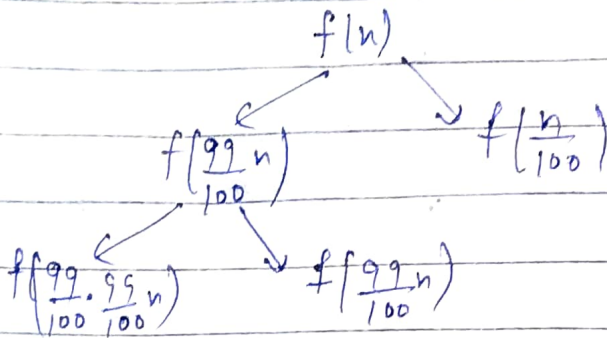 f(n)
f(99/100 n) f(n/100)
f(99/100 . 99/100 n) f(99/100 n)